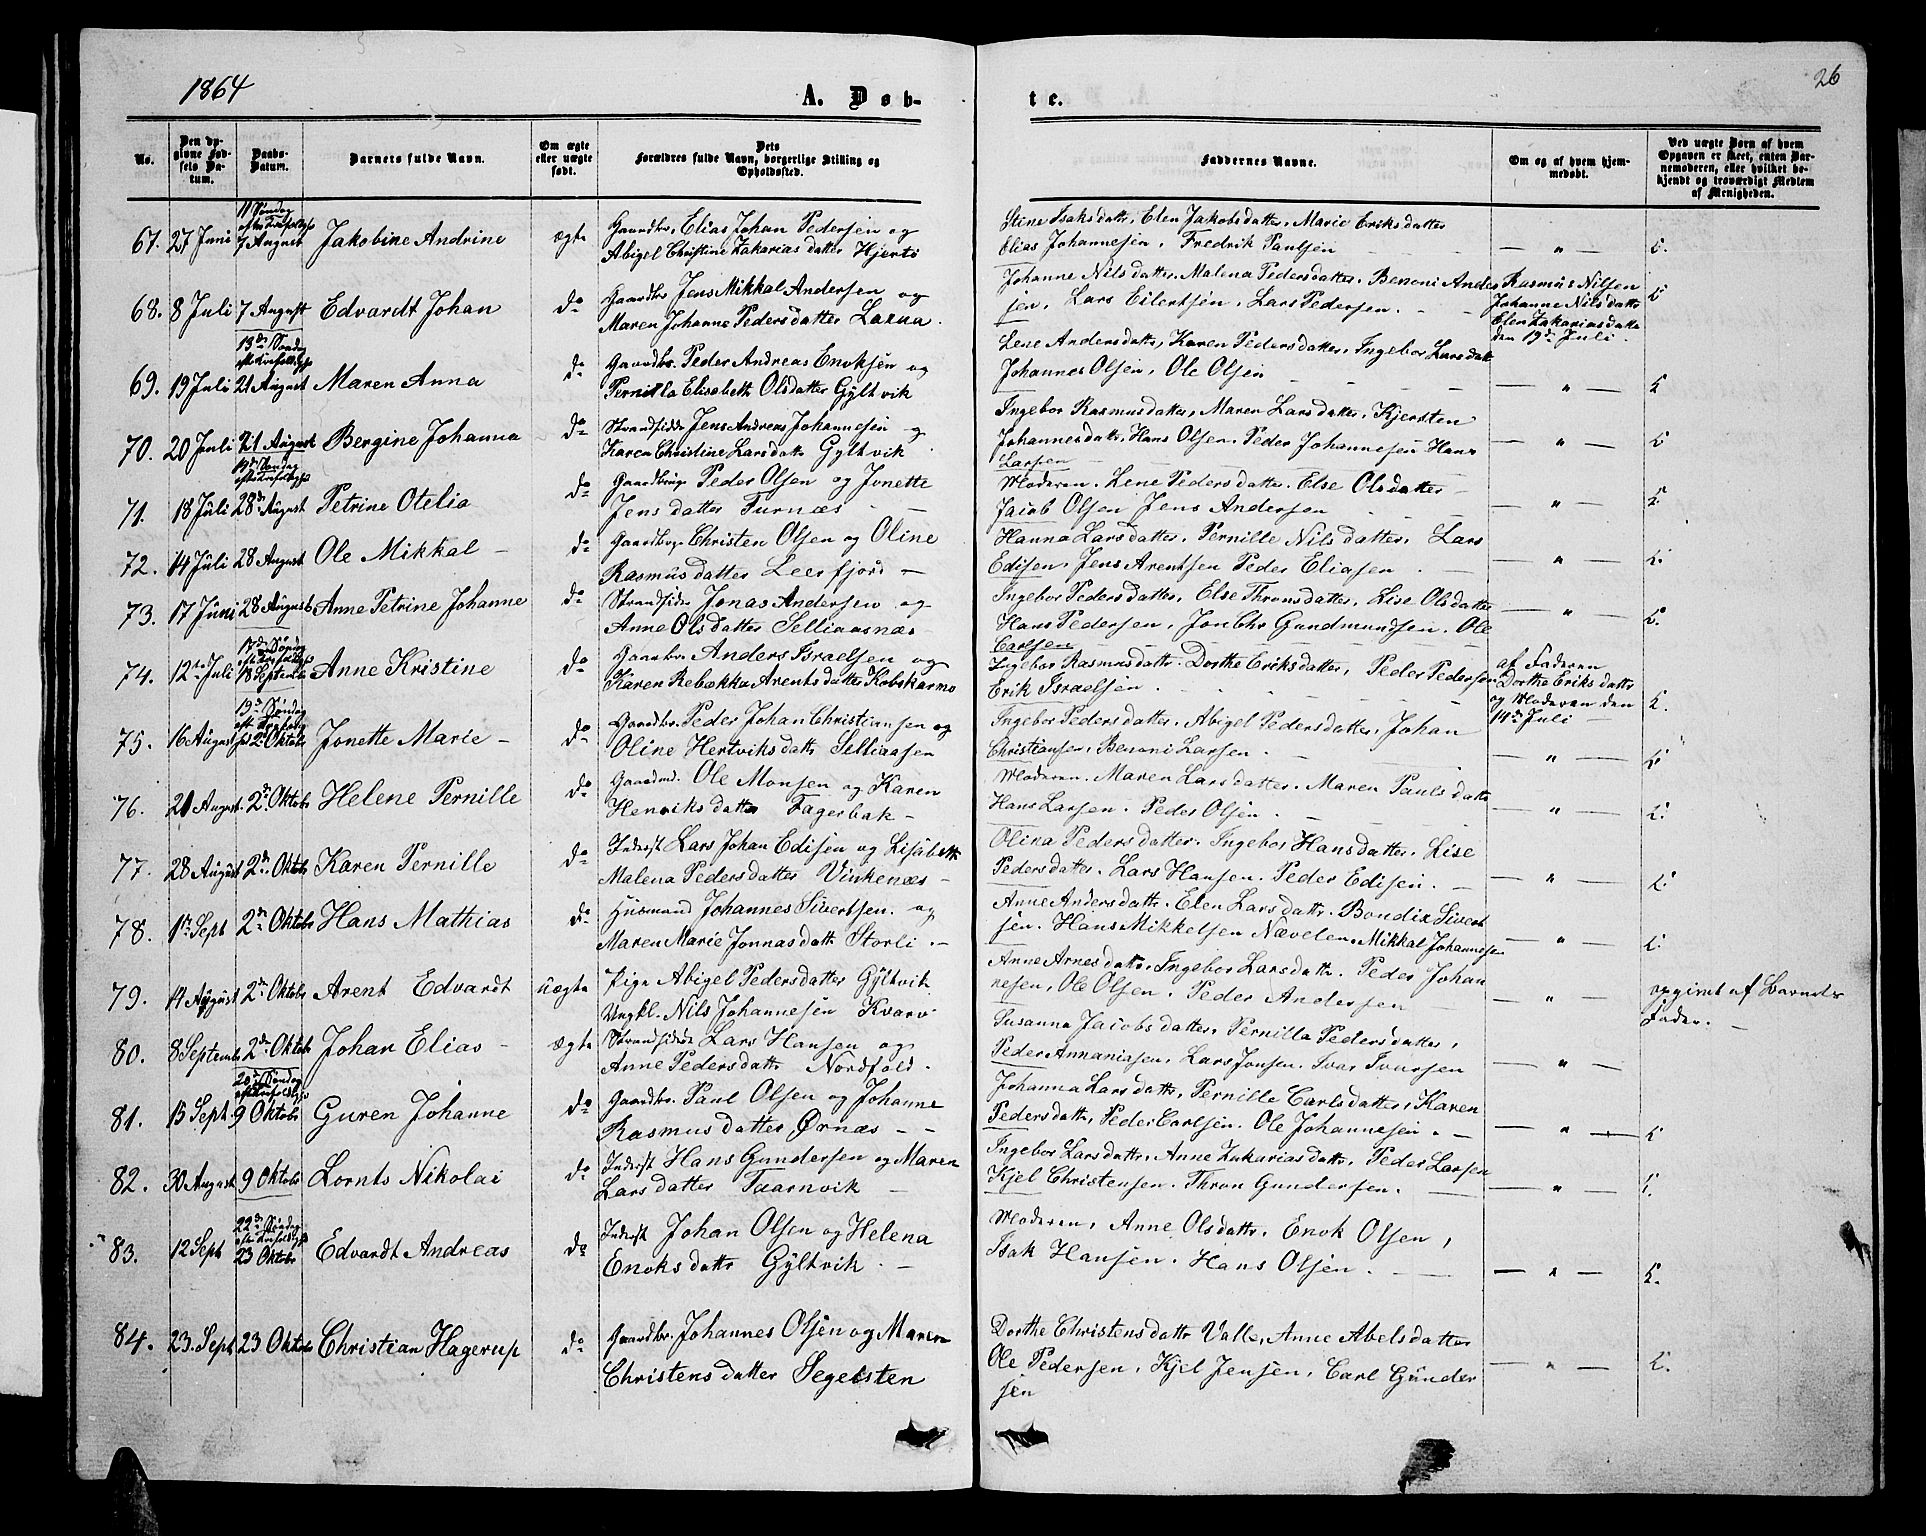 1864
A. Døb-
te.
26
No.
Den opgivne Fødsels Datum.
Daabs-Datum.
Barnets fulde Navn.
Om ægte eller uægte født.
Dets Forældres fulde Navn, borgerlige Stilling og Opholdssted.
Faddernes Navne.
Om og af hvem hjemmedøbt.
Ved uægte Børn af hvem Opgaven er skeet, enten Barnemoderen, eller hvilket bekjendt og troværdigt Medlem af Menigheden.
11 Søndag
67. 27 Juni 7 August Jakobine Andrine ægte Gaardbr. Elias Johan Pedersen og
Abigel Christine Zakariasdatter Hjertø
Stine Isaksdattr, Elen Jakobsdatter, Marie Eriksdatter
Elias Johannesen, Fredrik Paulsen — " —
68. 8 Juli 7 August Edvardt Johan do Gaardbr Jens Mikkal Andersen og
Maren Johanne Pedersdatter Laxaa.
Johanne Nilsdatter, Malena Pedersdatter, Benoni Ander
sen, Lars Eilertsen, Lars Pedersen.
Rasmus Nilsen
Johanne Nilsdattr
Elen Zakariasdattr
den 19de Juli.
13de Søndag
69. 19 Juli 21 August Maren Anna do Gaardbr. Peder Andreas Enoksen og
Pernilla Elisabeth Olsdatter Gyltvik
Lene Andersdattr, Karen Pedersdatter, Ingebor Larsdatt
Johannes Olsen, Ole Olsen — " —
70. 20 Juli 21 August Bergine Johanna do Strandsidder Jens Andreas Johannesen og
Karen Christine Larsdattr Gyltvik
Ingebor Rasmusdatter, Maren Larsdatter, Kjersten
Johannesdattr, Hans Olsen, Peder Johannesen Hans
Larsen — " —
14de Søndag
71. 18 Juli 28de August Petrine Otelia do Gaardbrug. Peder Olsen og Jonette
Jensdatter Furnæs
Moderen. Lene Pedersdatter. Else Olsdatter
Jacob Olsen Jens Andersen — " —
72. 14 Juli 28 August Ole Mikkal do Gaardbrg. Christen Olsen og Oline
Rasmusdatter Leerfjord
Hanna Larsdatter, Pernille Nilsdatter, Lars
Edisen, Jens Arentsen Peder Eliasen — " —
73. 17 Juni 28 August Anne Petrine Johanne do Strandsidr Jonas Andersen og
Anne Olsdatter Selliaasnæs
Ingebor Pedersdatter, Else Thronsdatter, Lise Olsdatter
Hans Pedersen, Jon Chr Gundmundsen. Ole
Carlsen — " —
17de Søndag
74. 12te Juli 18 Septemb Anne Kristine do Gaardbr. Anders Israelsen og
Karen Rebekka Arentsdatter Kobskarmo
Ingebor Rasmusdattr. Dorthe Eriksdatter, Peder Pedersen
Erik Israelsen.
af Faderen
Dorthe Eriksdattr
og Moderen den
14de Juli
19de Søndag
75. 16 August 2 Oktob Jonette Marie do Gaardbr. Peder Johan Christiansen og
Oline Hertviksdattr Selliaasen
Ingebor Pedersdatter, Abigel Pedersdatter, Johan
Christiansen, Benoni Larsen — " —
76. 21 August 2de Oktob Helene Pernille do Gaardmd. Ole Monsen og Karen
Henriksdatter Fagerbak
Moderen. Maren Larsdatter. Maren Paulsdattr
Hans Larsen. Peder Olsen. — " —
77. 28 August 2de Oktob Karen Pernille do Inderst Lars Johan Edisen og Lisabeth
Malena Pedersdatter Vinkenæs
Olina Pedersdatter. Ingebor Hansdatter. Lise
Pedersdattr. Lars Hansen. Peder Edisen. — " —
78. 1ste Sept 2de Oktobr Hans Mathias do Huusmand Johannes Sivertsen og
Maren Marie Jonnasdattr Storli.
Anne Andersdattr. Elen Larsdattr. Bondix Sivert
sen. Hans Mikkelsen Nævelen. Mikkal Johannesen — " —
79. 14 August 2de Oktob Arent Edvardt uægte Pige Abigel Pedersdatter Gyltvik
Ungkl. Nils Johannesen Kvarv
Anne Arnesdattr. Ingebor Larsdattr. Peder Johan
nesen, Ole Olsen. Peder Andersen — " —
opgivet af Barnets
Fader.
80. 8 Septemb 2de Oktob Johan Elias ægte Strandsidde Lars Hansen og
Anne Pedersdattr Nordfold.
Susanna Jacobsdatter, Pernilla Pedersdatter,
Peder Annaniasen, Lars Jonsen. Ivar Ivarsen — " —
20de Søndag
81. 15 Sept 9 Oktob Guren Johanne do Gaardbr. Paul Olsen og Johanne
Rasmusdatter Ørnæs
Johanna Larsdattr, Pernille Carlsdatter, Karen
Pedersdattr, Peder Carlsen. Ole Johannesen — " —
82. 30 August 9 Oktob Lornts Nikolai do Inderst Hans Gundersen og Maren
Larsdatter Taarnvik
Ingebor Larsdattr, Anne Zakariasdattr, Peder Larsen
Kjel Christensen. Thron Gundersen. — " —
22de Søndag
83. 12 Sept 23 Oktob Edvardt Andreas do Inderst Johan Olsen og Helena
Enoksdattr Gyltvik
Moderen, Anne Olsdattr. Enok Olsen,
Isak Hansen. Hans Olsen. — " —
84. 23. Sept 23 Oktob Christian Hagerup do Gaardbr. Johannes Olsen og Maren
Christensdatter Segelsten
Dorthe Christensdattr Valle, Anne Abelsdatter
Ole Pedersen, Kjel Jensen, Carl Gunder
sen — " —